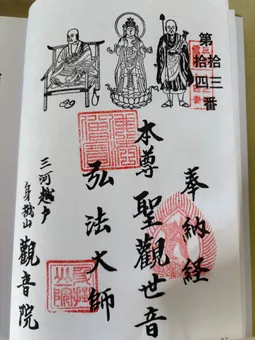 第拾三
拾四番
奉納経
本尊聖觀世音
弘法大師
三河越戸
觀音院